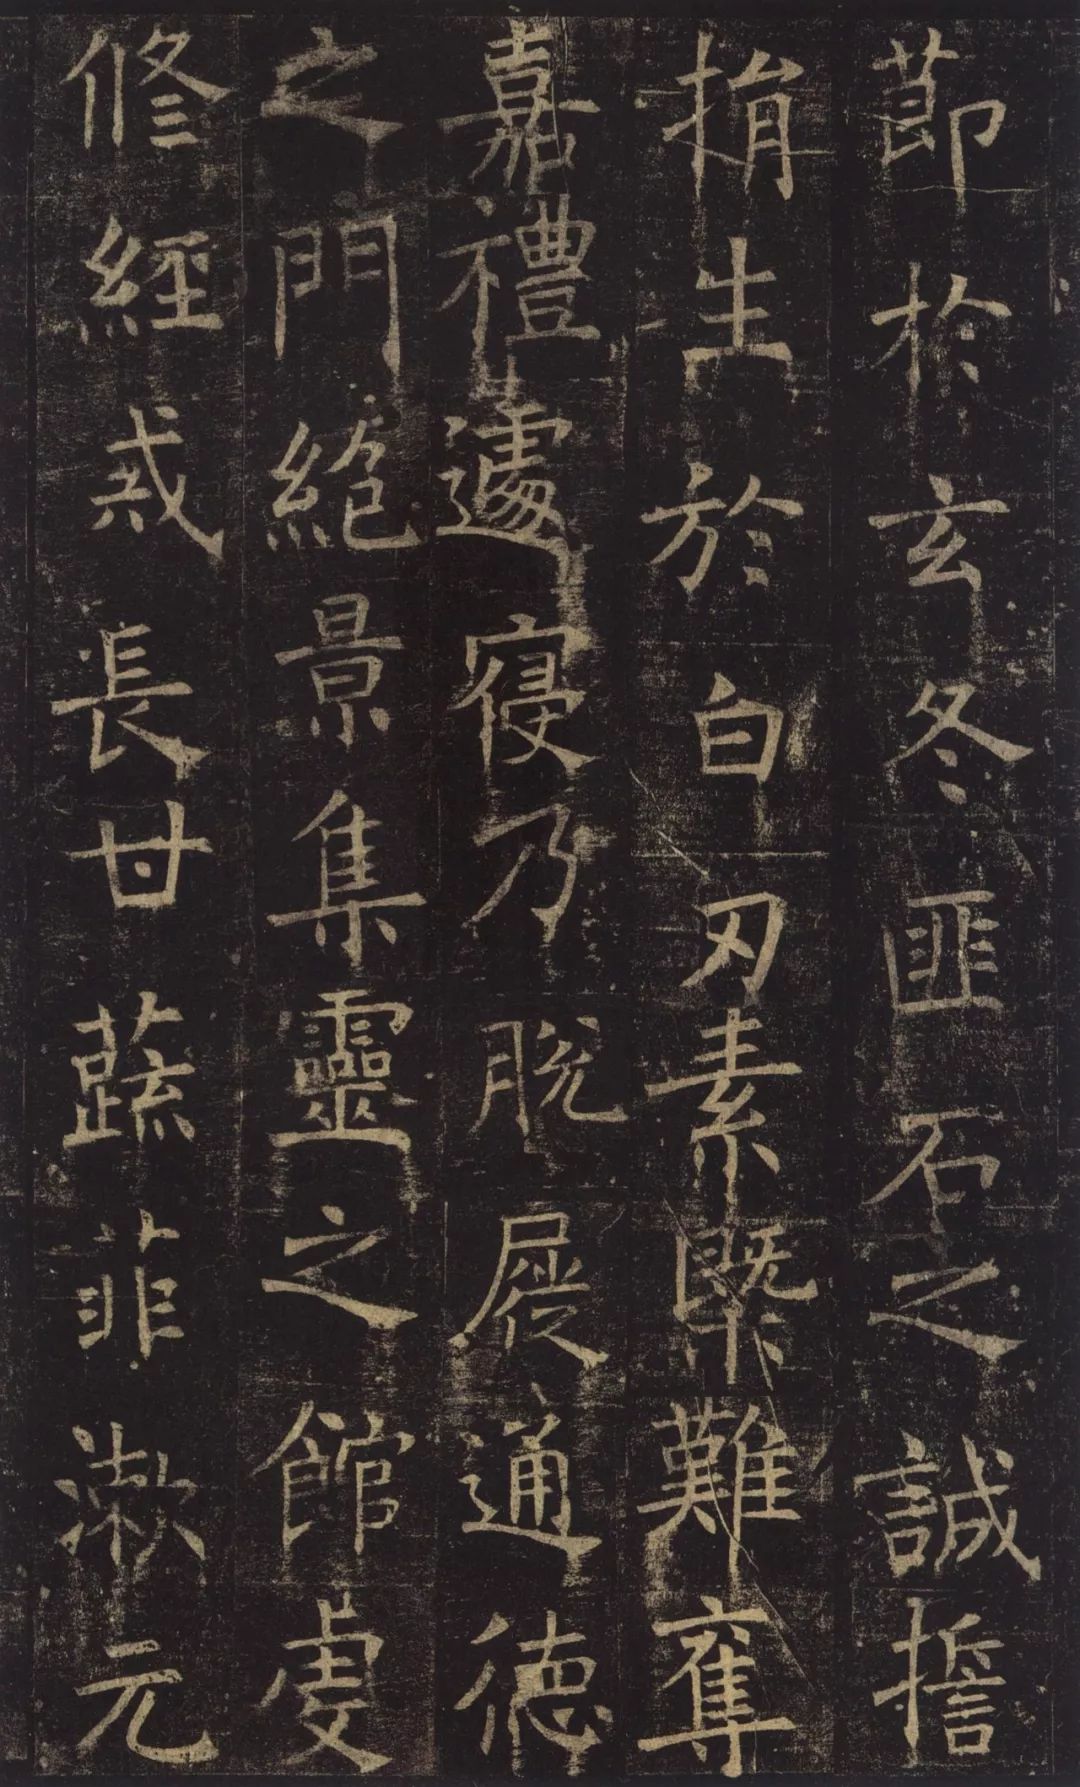 節於玄冬匪石之誠擔
捐生於白刃素槩難奪
嘉禮遽寢乃脫屣通德
之門絕景集靈之館虔
脩經戒長甘蔬菲漱元